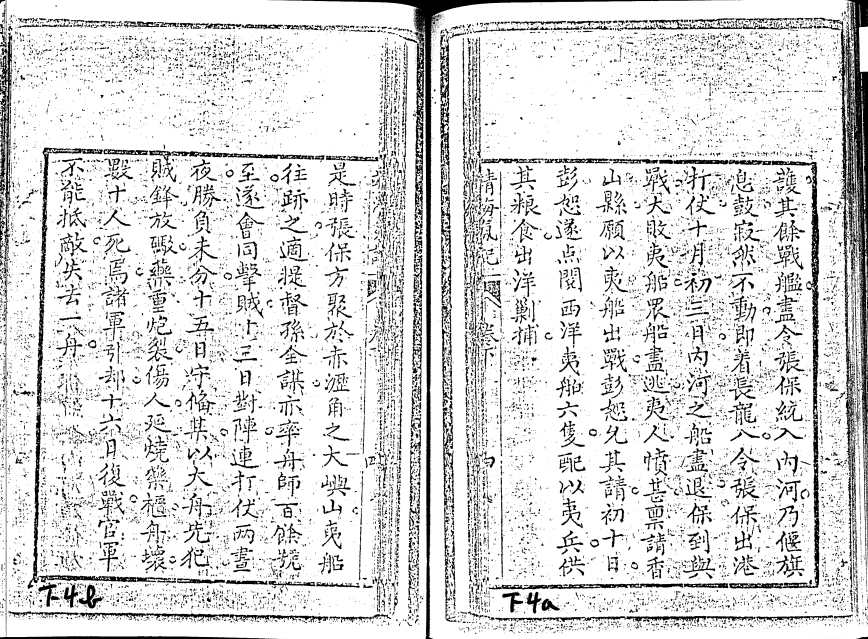 護其餘戰艦盡令張保統入內河乃偃旗
息鼓寂然不動即着長龍八令張保出港
打伏十月初三日內河之船盡退保到與
戰大敗夷船眾船盡逃夷人憤甚禀請香
山縣願以夷船出戰彭恕允其請初十日
彭恕遂点閱西洋夷舶六隻配以夷兵供
其粮食出洋剿捕
靖海氛記 卷下 四
是時張保方聚於赤瀝角之大嶼山夷船
往跡之適提督孫全謀亦率舟師百餘號
至遂會同擊賊十三日對陣連打伏两晝
夜勝負未分十五日守偹某以大舟先犯
賊鋒放藥重炮裂傷人延燒藥櫃舟壞
數十人死焉諸軍引却十六日復戰官軍
不能抵敵失去一舟
下4b
下4a